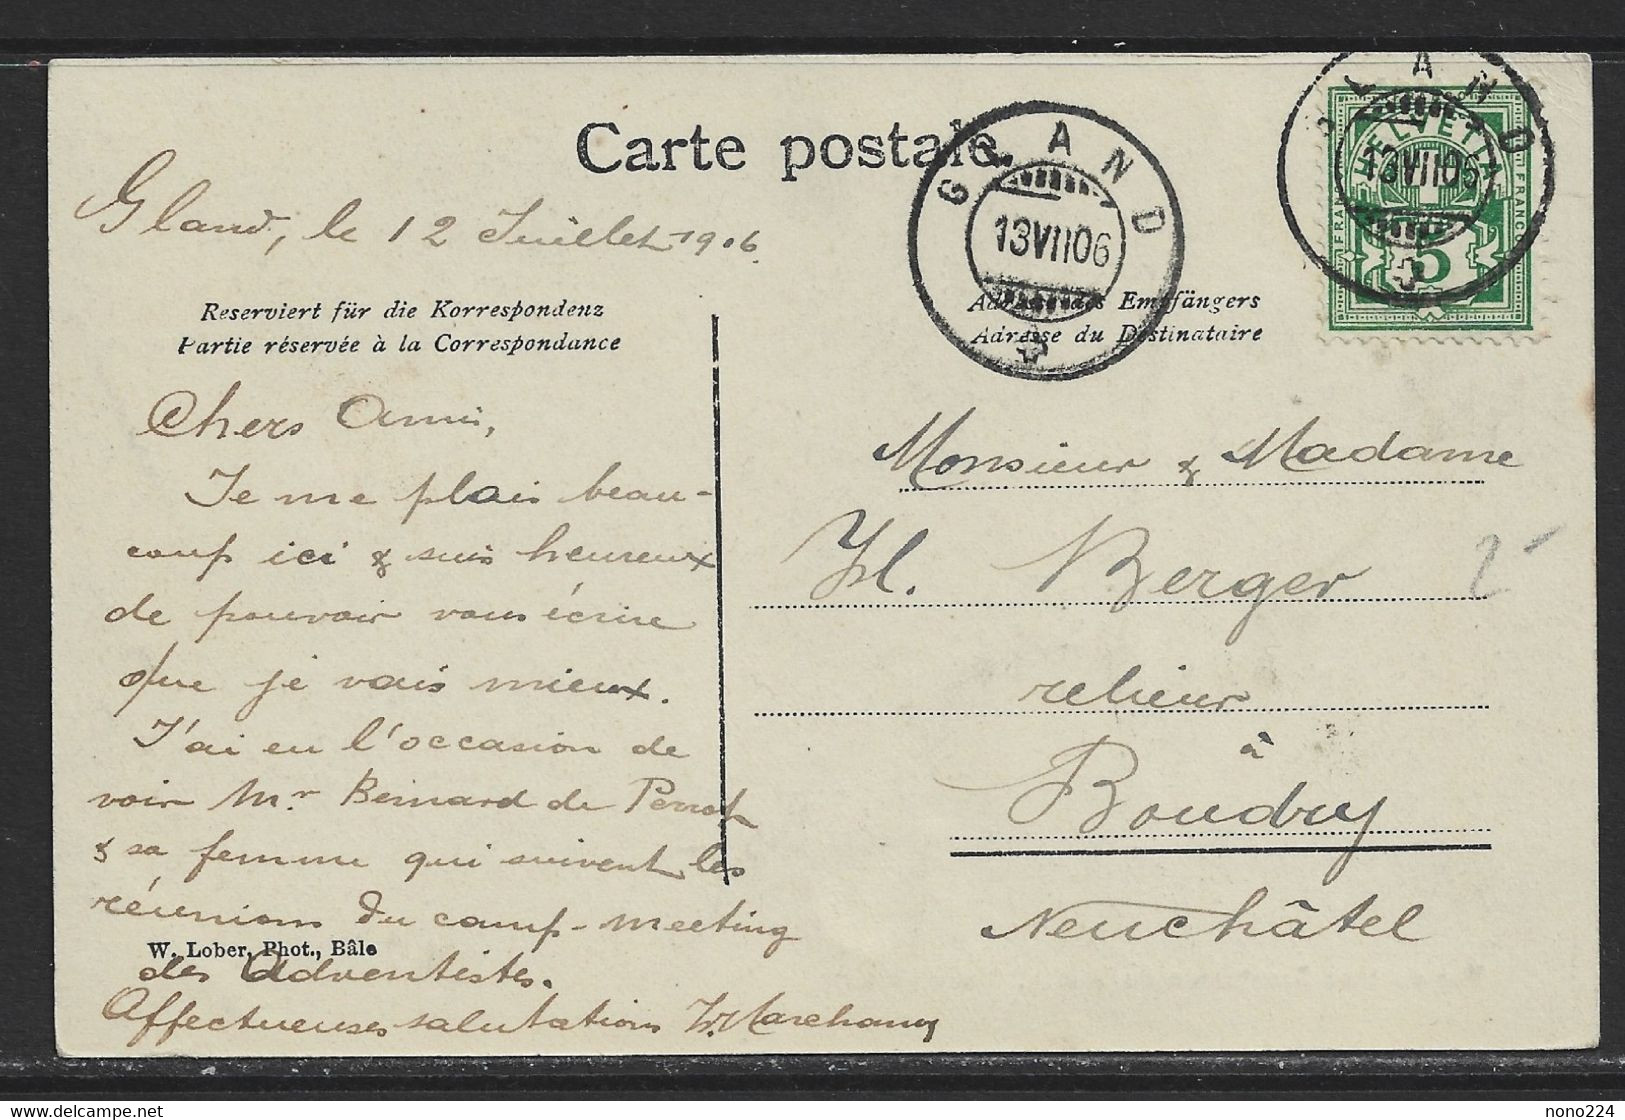 Carte postale.
Gland, le 12 Juillet 1906.
GLAND
13 VII 06
GLAND
13 VII 06
HELVETIA
FRANCO
FRANCO
5
Reserviert für die Korrespondenz
Partie réservée à la Correspondance
Adresse des Empfängers
Adresse du Destinataire
Chers Amis,
Je me plais beau-
coup ici & suis heureux
de pouvoir vous écrire
que je vais mieux.
J'ai eu l'occasion de
voir Mr Bernard de Perrot
& sa femme qui suivent les
réunions du camp-meeting
des Adventistes.
Affectueuses salutations Marchand
W. Lober, Phot., Bâle
Monsieur & Madame
H. Berger
relieur
à
Boudry
Neuchâtel
2
delcampe.net
nono224